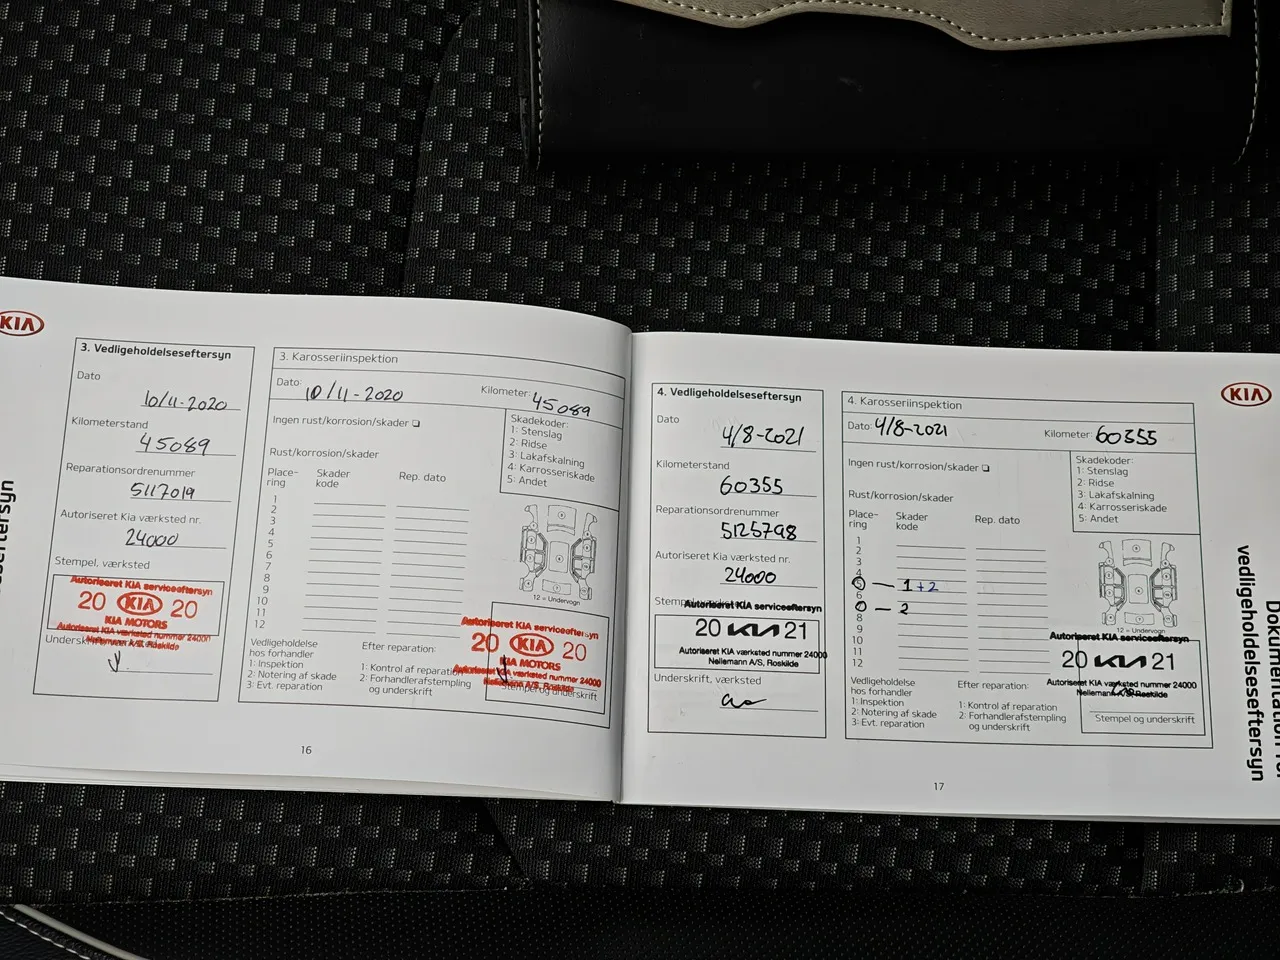 KIA
3. Vedligeholdelseseftersyn
Dato
10/11-2020
Kilometerstand
45089
Reparationsordrenummer
5117019
Autoriseret Kia værksted nr.
24000
Stempel, værksted
Autoriseret KIA serviceeftersyn
20 KIA 20
KIA MOTORS
Autoriseret KIA værksted nummer 24000
Nellemann A/S, Roskilde
Underskrift, værksted
3. Karosseriinspektion
Dato: 10/11-2020
Kilometer: 45089
Ingen rust/korrosion/skader
Skadekoder:
1: Stenslag
2: Ridse
3: Lakafskalning
4: Karrosseriskade
5: Andet
Rust/korrosion/skader
Place-
ring
Skader
kode
Rep. dato
1
2
3
4
5
6
7
8
9
10
11
12
12 = Undervogn
Vedligeholdelse
hos forhandler
1: Inspektion
2: Notering af skade
3: Evt. reparation
Efter reparation:
1: Kontrol af reparation
2: Forhandlerafstempling
og underskrift
Autoriseret KIA serviceeftersyn
20 KIA 20
KIA MOTORS
Autoriseret KIA værksted nummer 24000
Nellemann A/S, Roskilde
Stempel og underskrift
16
eftersyn
4. Vedligeholdelseseftersyn
Dato
4/8-2021
Kilometerstand
60355
Reparationsordrenummer
5125798
Autoriseret Kia værksted nr.
24000
Autoriseret KIA serviceeftersyn
20 KIA 21
Autoriseret KIA værksted nummer 24000
Nellemann A/S, Roskilde
Underskrift, værksted
4. Karosseriinspektion
Dato: 4/8-2021
Kilometer: 60355
Ingen rust/korrosion/skader
Skadekoder:
1: Stenslag
2: Ridse
3: Lakafskalning
4: Karrosseriskade
5: Andet
Rust/korrosion/skader
Place-
ring
Skader
kode
Rep. dato
1
2
3
4
5 — 1+2
6
— 2
8
9
10
11
12
12 = Undervogn
Vedligeholdelse
hos forhandler
1: Inspektion
2: Notering af skade
3: Evt. reparation
Efter reparation:
1: Kontrol af reparation
2: Forhandlerafstempling
og underskrift
Autoriseret KIA serviceeftersyn
20 KIA 21
Autoriseret KIA værksted nummer 24000
Nellemann A/S, Roskilde
Stempel og underskrift
17
KIA
Dokumentation for
vedligeholdelseseftersyn